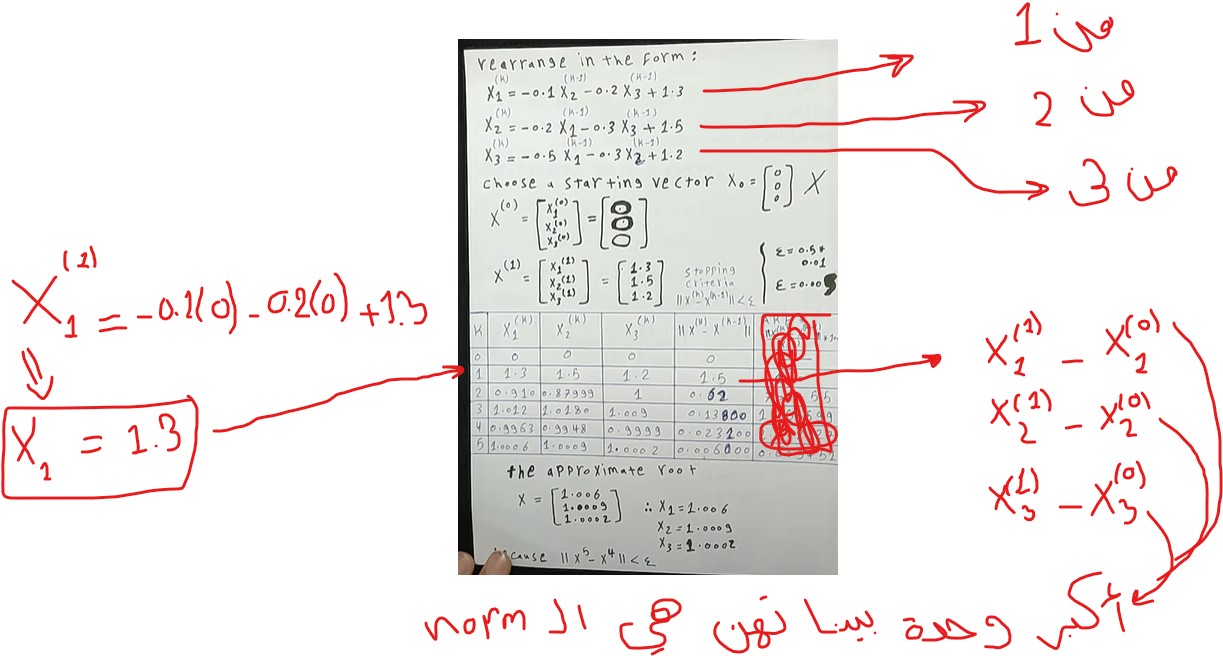 rearrange in the form:
X₁⁽ᴷ⁾ = -0.1 X₂⁽ᴷ⁻¹⁾ - 0.2 X₃⁽ᴷ⁻¹⁾ + 1.3
من 1
X₂⁽ᴷ⁾ = -0.2 X₁⁽ᴷ⁻¹⁾ - 0.3 X₃⁽ᴷ⁻¹⁾ + 1.5
من 2
X₃⁽ᴷ⁾ = -0.5 X₁⁽ᴷ⁻¹⁾ - 0.3 X₂⁽ᴷ⁻¹⁾ + 1.2
من 3
choose a starting vector X₀ = [0 0 0] X
X⁽⁰⁾ = [X₁⁽⁰⁾ X₂⁽⁰⁾ X₃⁽⁰⁾] = [0 0 0]
ε = 0.5 * 0.01
ε = 0.005
X⁽¹⁾ = [X₁⁽¹⁾ X₂⁽¹⁾ X₃⁽¹⁾] = [1.3 1.5 1.2]
stopping criteria
||X⁽ᴷ⁾ - X⁽ᴷ⁻¹⁾|| < ε
X₁⁽¹⁾ = -0.1(0) - 0.2(0) + 1.3
X₁ = 1.3
K X₁⁽ᴷ⁾ X₂⁽ᴷ⁾ X₃⁽ᴷ⁾ ||X⁽ᴷ⁾ - X⁽ᴷ⁻¹⁾||
0 0 0 0 0
1 1.3 1.5 1.2 1.5
2 0.910 0.87999 1 0.62
3 1.012 1.0180 1.009 0.13800
4 0.9963 0.9948 0.9999 0.023200
5 1.0006 1.0009 1.0002 0.006000
X₁⁽¹⁾ - X₁⁽⁰⁾
X₂⁽¹⁾ - X₂⁽⁰⁾
X₃⁽¹⁾ - X₃⁽⁰⁾
the approximate root
X = [1.006 1.0009 1.0002]
∴ X₁ = 1.006
X₂ = 1.0009
X₃ = 1.0002
because ||X⁵ - X⁴|| < ε
أكبر وحدة بيناتهن هي الـ norm